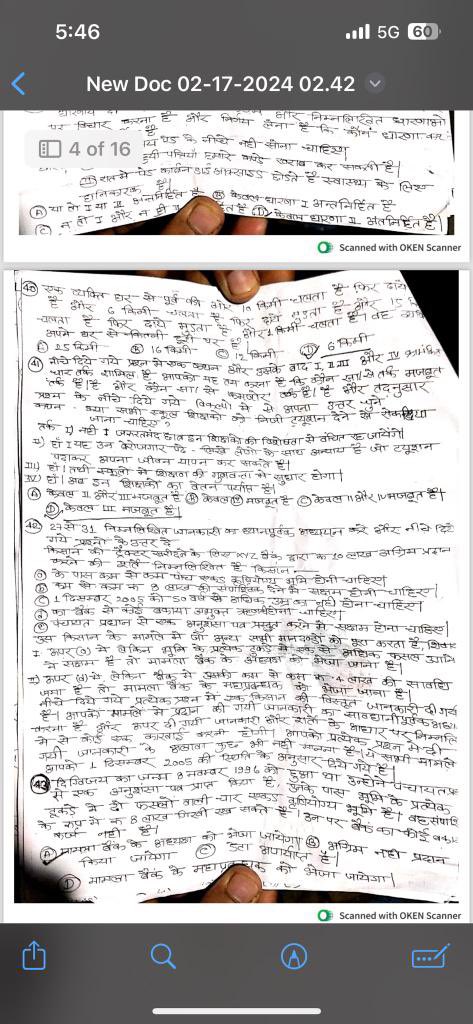 5:46
5G 60
New Doc 02-17-2024 02.42
पर विचार करना है और निर्णय लेना है कि कौन धारणा
4 of 16
पेड़ के नीचे नहीं सोना चाहिए।
हमारे कपड़े खराब कर सकती हैं।
हानिकारक है।
Ⓐ या तो I या II अन्तर्निहित है Ⓑ केवल धारणा I अन्तर्निहित है
Ⓒ न तो I और न ही Ⓓ केवल धारणा II अंतर्निहित है।
Scanned with OKEN Scanner
40 एक व्यक्ति घर से पूर्व की ओर किमी चलता है फिर दायें
है और 6 किमी चलता है फिर दायें मुड़ता है और 15
चलता है फिर दायें मुड़ता है और 1 किमी चलता है। वह
अपने घर से कितनी दूरी पर है
15 किमी Ⓑ 16 किमी Ⓒ 12 किमी Ⓓ 6 किमी
41 नीचे दिये गये प्रश्न में एक कथन और उसके बाद I, II, III और IV क्रमांकित
चार तर्क शामिल हैं, आपको यह तय करना है कि कौन सा/से तर्क मजबूत
तर्क है/हैं और कौन सा/से कमजोर तर्क है/हैं और तदनुसार
प्रश्न के नीचे दिये गये विकल्पों में से अपना उत्तर चुनें
कथन - क्या सभी स्कूल शिक्षकों को निजी ट्यूशन देने से रोक दिया
जाना चाहिए?
तर्क I) नहीं। जरूरतमंद छात्र इन शिक्षकों की विशेषता से वंचित रह जायेंगे।
II) हाँ। यह उन बेरोजगार पढ़े-लिखे लोगों के साथ अन्याय है जो ट्यूशन
पढ़ाकर अपना जीवन यापन कर सकते हैं।
III) हाँ। तभी स्कूलों में शिक्षण की गुणवत्ता में सुधार होगा।
IV) हाँ। अब इन शिक्षकों का वेतन पर्याप्त है।
Ⓐ केवल II और III मजबूत है Ⓑ केवल मजबूत है Ⓒ केवल II और IV मजबूत है।
Ⓓ केवल III मजबूत है।
42 29 से 31 निम्नलिखित जानकारी का ध्यानपूर्वक अध्ययन करें और नीचे दिये
गये प्रश्नों के उत्तर दें
किसान को ट्रैक्टर खरीदने के लिए XYZ बैंक द्वारा रू 10 लाख अग्रिम प्रदान
करने की शर्तें निम्नलिखित हैं किसान—
ⓐ के पास कम से कम पाँच एकड़ कृषियोग्य भूमि होनी चाहिए।
ⓑ कम से कम रू 8 लाख की संपार्श्विक देने में सक्षम होनी चाहिए।
ⓒ 1 दिसम्बर 2005 को 50 वर्ष से अधिक उम्र का नहीं होना चाहिए।
ⓓ का बैंक से कोई बकाया ऋण नहीं होना चाहिए।
ⓔ पंचायत प्रधान से एक अनुशंसा पत्र प्रस्तुत करने में सक्षम होना चाहिए।
उस किसान के मामले में जो अन्य सभी मानदण्डों को पूरा करता है, सिवाय
I ऊपर (a) में लेकिन भूमि के प्रत्येक टुकड़े में एक से अधिक फसल उगाने
में सक्षम है तो मामला बैंक के अध्यक्ष को भेजा जाना है।
II) ऊपर (b) में लेकिन बैंक में उसकी कम से कम रू 4 लाख की सावधि
जमा है तो मामला बैंक के महाप्रबन्धक को भेजा जाना है।
नीचे दिये गये प्रत्येक प्रश्न में एक किसान की विस्तृत जानकारी दी गयी
है। आपको मामले में प्रदान की गयी जानकारी का सावधानीपूर्वक अध्ययन
करना है और ऊपर दी गयी जानकारी और शर्तों के आधार पर निम्नलि
में से कोई एक कार्रवाई करनी होगी। आपको प्रत्येक प्रश्न में दी
गयी जानकारी के अलावा कुछ भी नहीं मानना है। ये सभी मामले
आपको 1 दिसम्बर 2005 की स्थिति के अनुसार दिये गये हैं।
43 दिग्विजय का जन्म 8 नवम्बर 1996 को हुआ था उन्होंने पंचायत प्र
से एक अनुशंसा पत्र प्राप्त किया है, उनके पास भूमि के प्रत्येक
टुकड़े में दो फसलों वाली चार एकड़ कृषियोग्य भूमि है। वह संपार्श्वि
के रूप में रू 8 लाख गिरवी रख सकते हैं। उन पर बैंक का कोई बकाया
कर्ज नहीं है।
Ⓐ मामला बैंक के अध्यक्ष को भेजा जायेगा। Ⓑ अग्रिम नहीं प्रदान
किया जायेगा Ⓒ डेटा अपर्याप्त है।
Ⓓ मामला बैंक के महाप्रबन्धक को भेजा जायेगा।
Scanned with OKEN Scanner